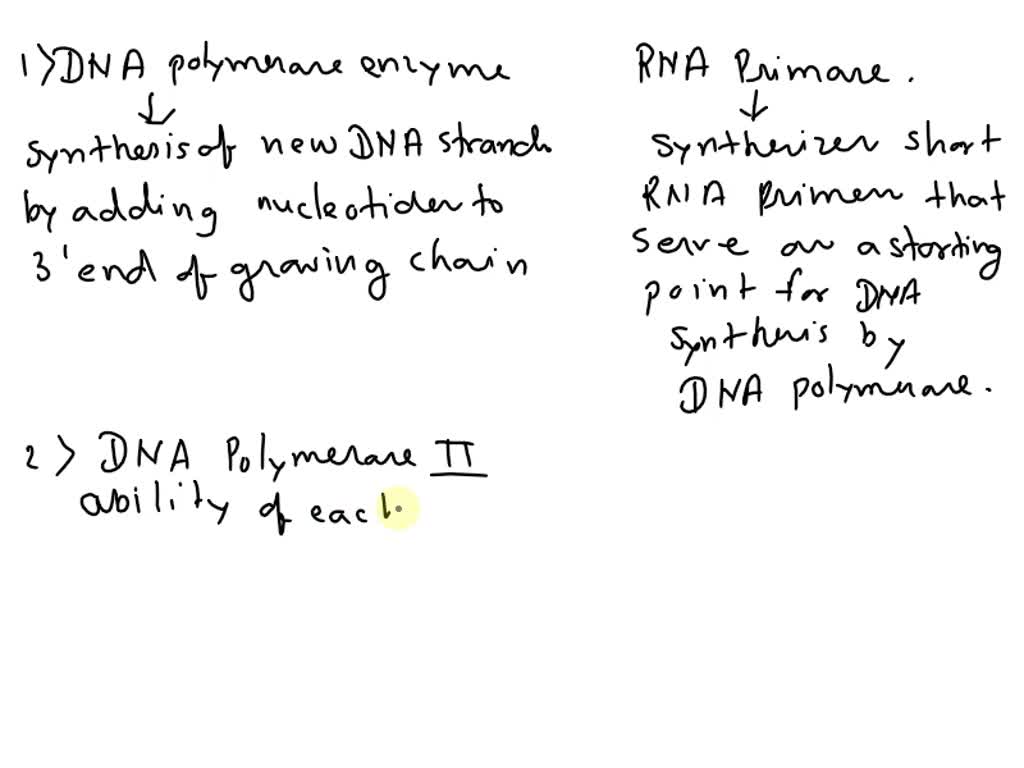 1> DNA polymerase enzyme
synthesis of new DNA strands
by adding nucleotides to
3' end of growing chain
RNA Primase.
Synthesizes short
RNA primers that
serve as a starting
point for DNA
synthesis by
DNA polymerase.
2> DNA Polymerase II
ability of each